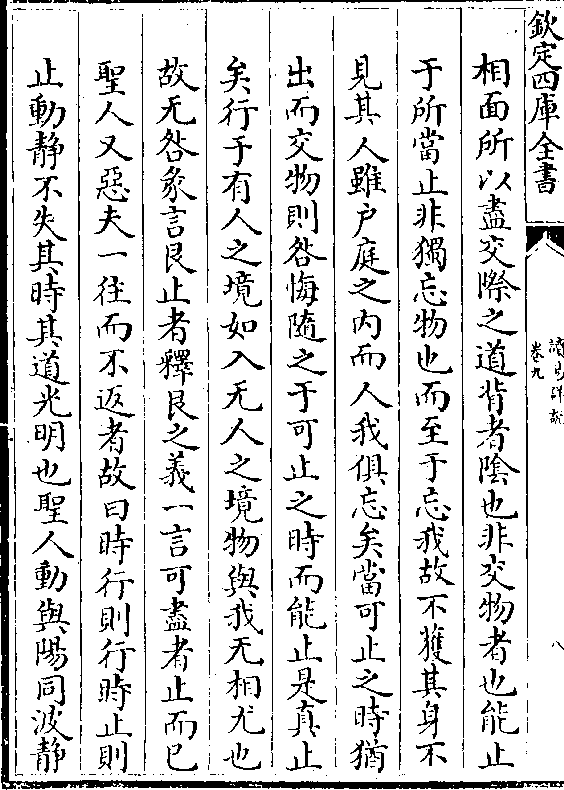 欽定四庫全書
讀易詳説
卷九
八
相面所以盡交際之道背者陰也非交物者也能止
于所當止非獨忘物也而至于忘我故不獲其身不
見其人雖户庭之内而人我俱忘矣當可止之時猶
出而交物則咎悔隨之于可止之時而能止是真止
矣行于有人之境如入无人之境物與我无相尤也
故无咎彖言艮止者釋艮之義一言可盡者止而已
聖人又惡夫一往而不返者故曰時行則行時止則
止動静不失其時其道光明也聖人動與陽同波静